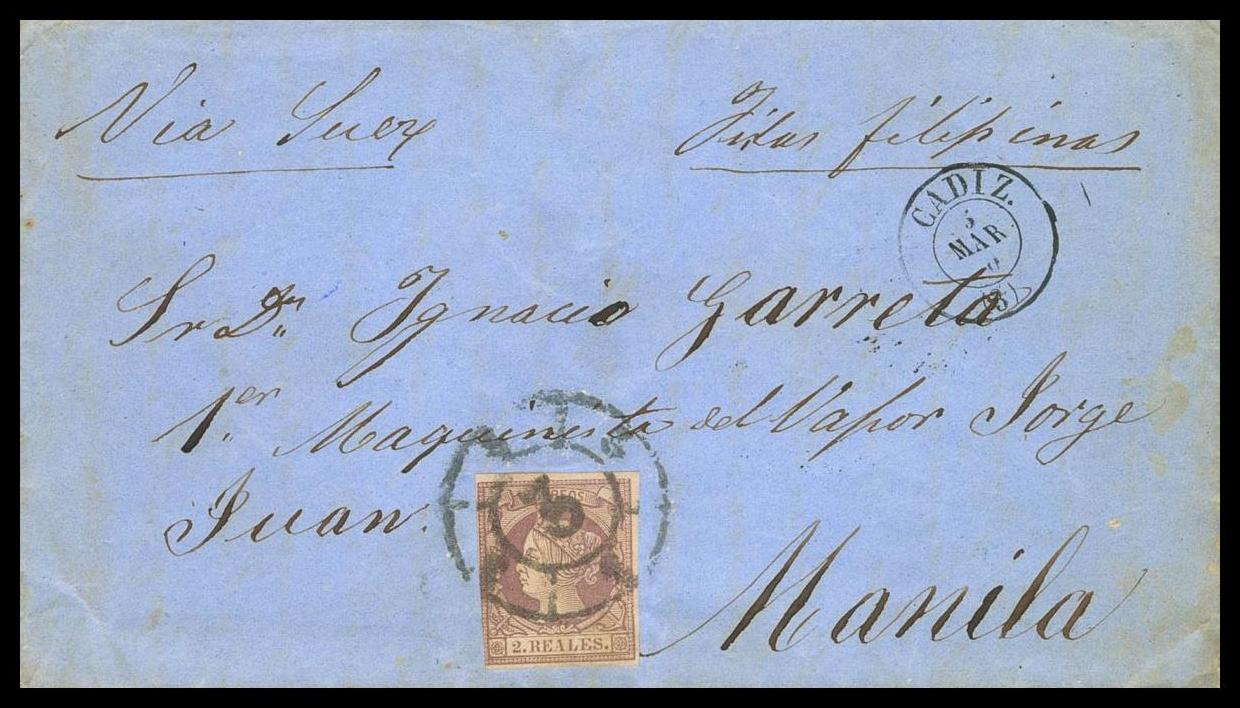 Via Suez
Islas filipinas
CADIZ.
5
MAR
Sr Dn Ignacio Garreta
1er Maquinista del Vapor Jorge
Juan.
CORREOS
2. REALES.
Manila